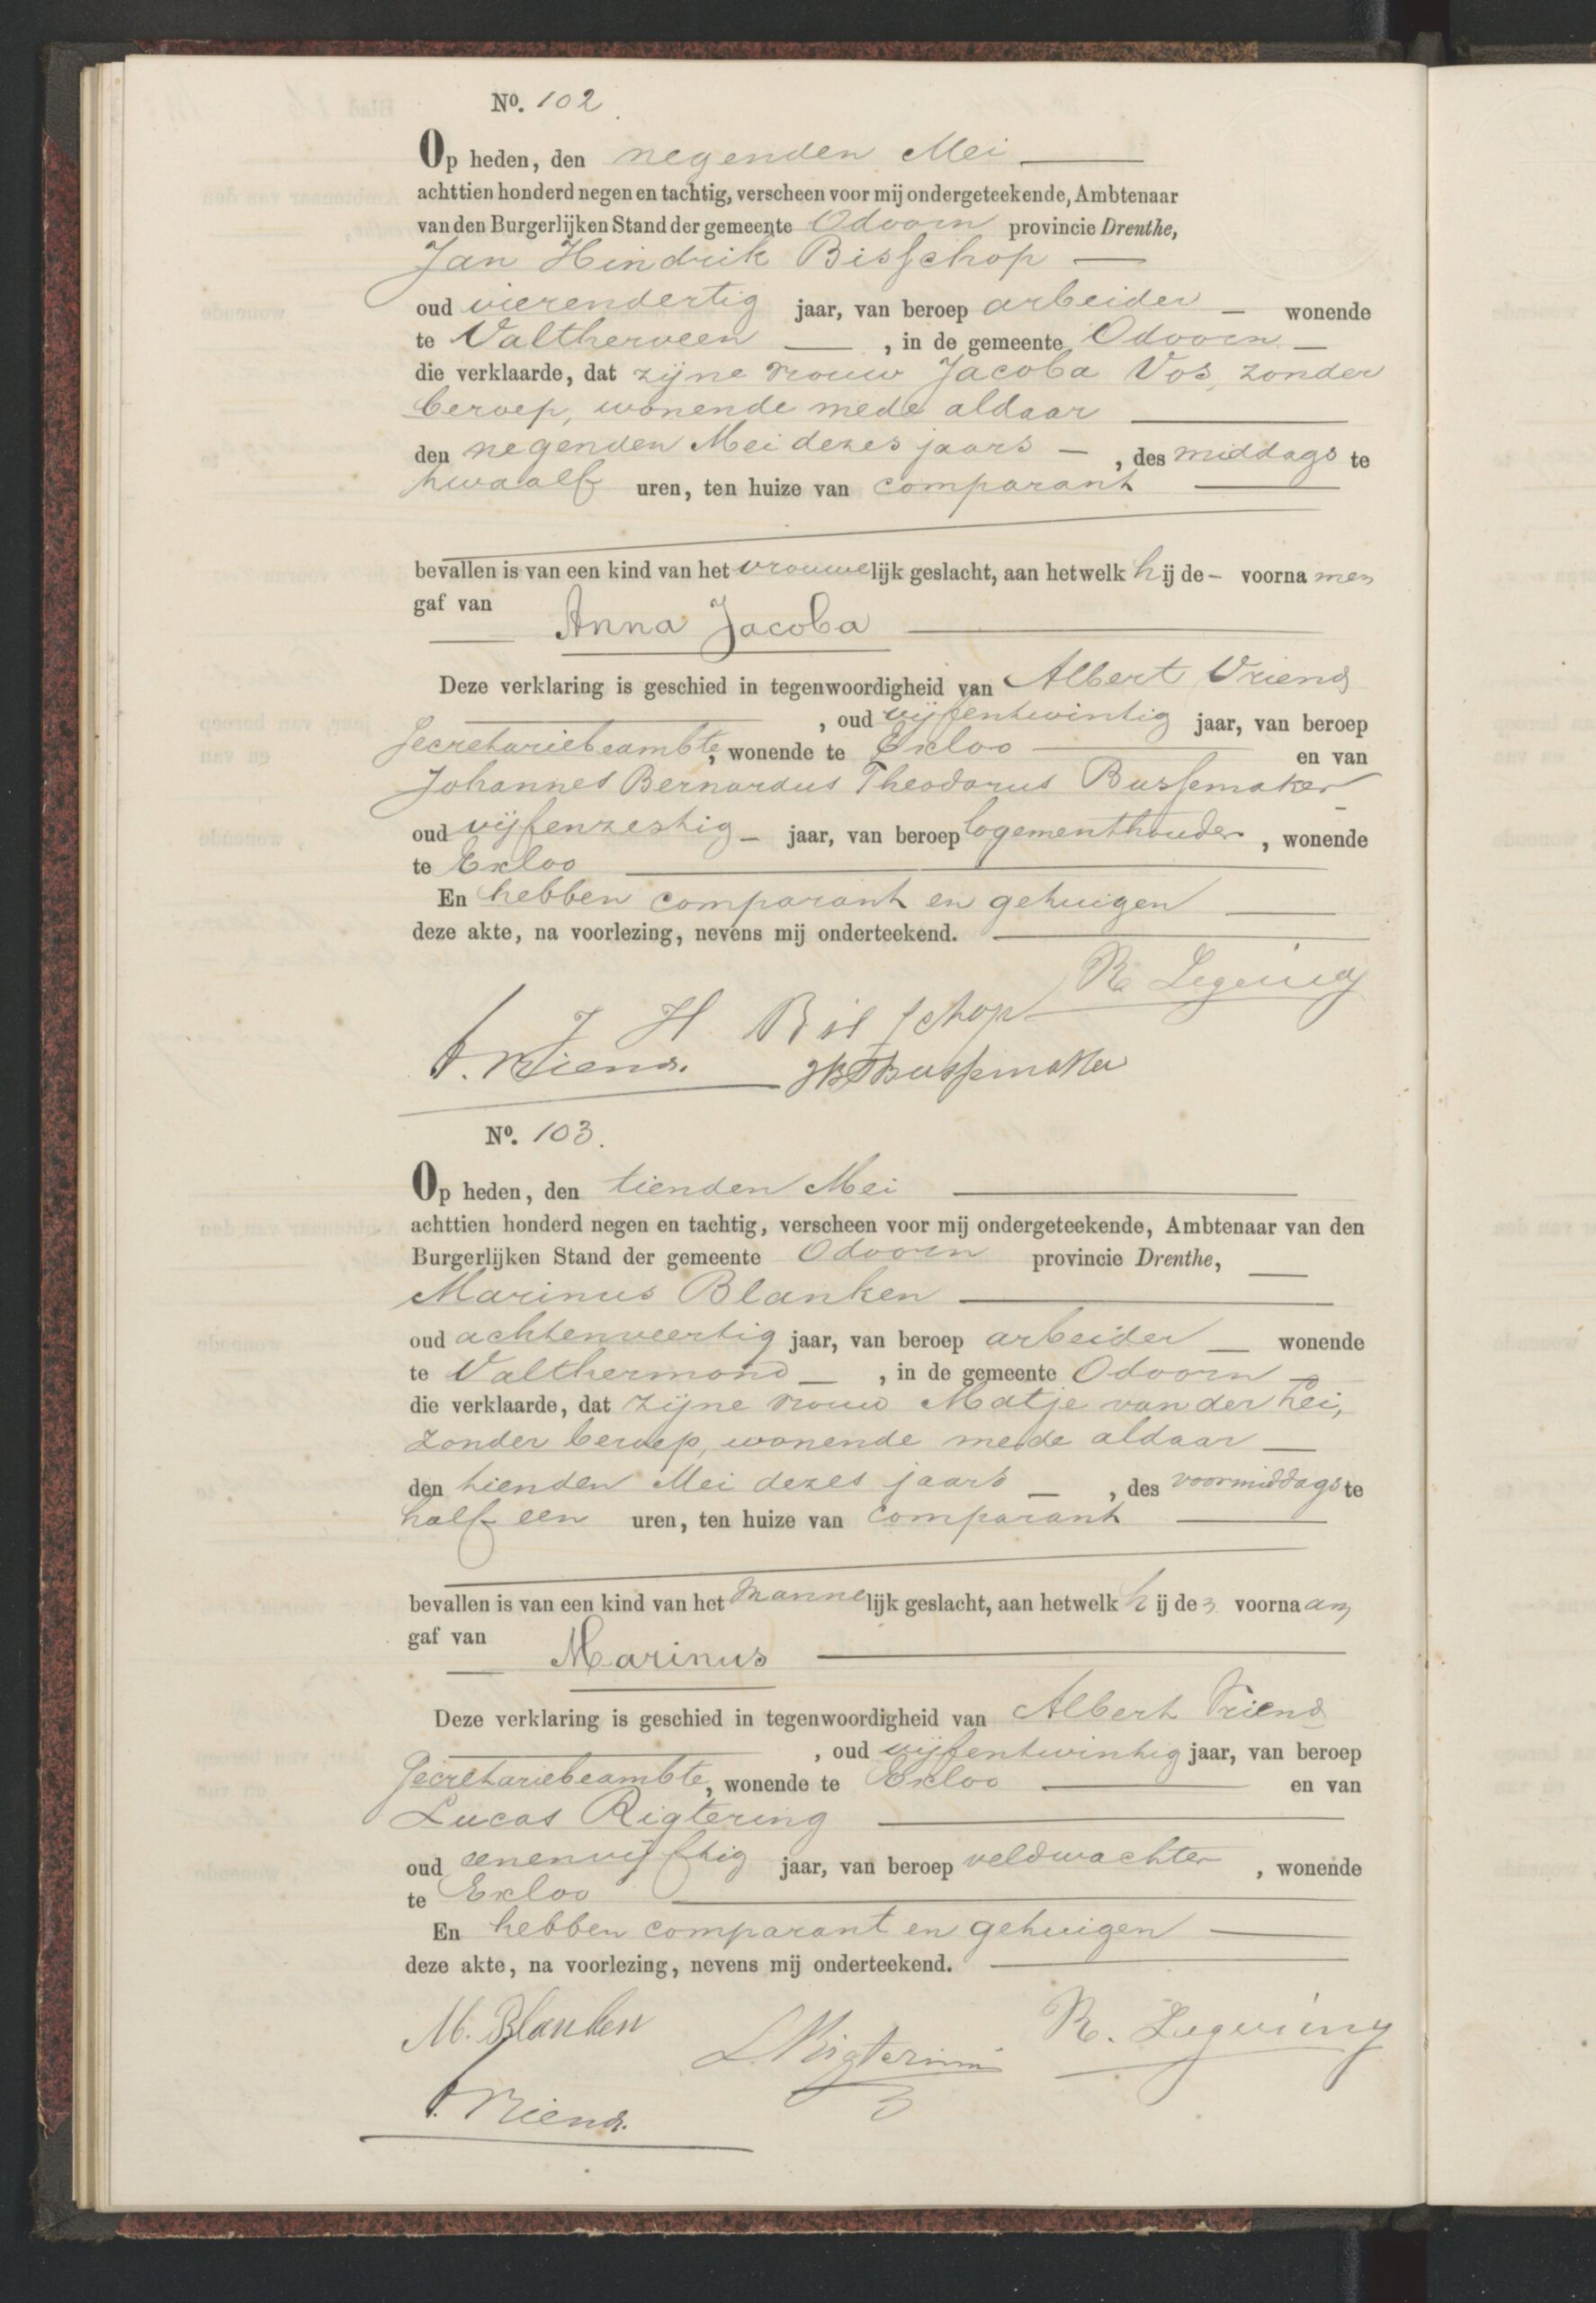 No. 102
Op heden, den negenden Mei
achttien honderd negen en tachtig, verscheen voor mij ondergeteekende, Ambtenaar
van den Burgerlijken Stand der gemeente Odoorn provincie Drenthe,
Jan Hindrik Bisschop
oud vierendertig jaar, van beroep arbeider wonende
te Valtherveen, in de gemeente Odoorn
die verklaarde, dat zijne vrouw Jacoba Vos, zonder
beroep, wonende mede aldaar
den negenden Mei dezes jaars, des middags te
twaalf uren, ten huize van comparant
bevallen is van een kind van het vrouwelijk geslacht, aan hetwelk hij de - voornamen
gaf van
Anna Jacoba
Deze verklaring is geschied in tegenwoordigheid van Albert Vriend
, oud vijfentwintig jaar, van beroep
Secretariebeambte, wonende te Exloo en van
Johannes Bernardus Theodorus Bussemaker
oud vijfenzestig jaar, van beroep logementhouder, wonende
te Exloo
En hebben comparant en getuigen
deze akte, na voorlezing, nevens mij onderteekend.
R Legering
J H Bisschop
A. Vriend. JBTBussemaker
No. 103.
Op heden, den tienden Mei
achttien honderd negen en tachtig, verscheen voor mij ondergeteekende, Ambtenaar van den
Burgerlijken Stand der gemeente Odoorn provincie Drenthe,
Marinus Blanken
oud achtenveertig jaar, van beroep arbeider wonende
te Valthermond, in de gemeente Odoorn
die verklaarde, dat zijne vrouw Matje van der Lei,
zonder beroep, wonende mede aldaar
den tienden Mei dezes jaars, des voormiddags te
half een uren, ten huize van comparant
bevallen is van een kind van het mannelijk geslacht, aan hetwelk hij den voornaam
gaf van
Marinus
Deze verklaring is geschied in tegenwoordigheid van Albert Vriend
, oud vijfentwintig jaar, van beroep
Secretariebeambte, wonende te Exloo en van
Lucas Rigtering
oud eenenvijftig jaar, van beroep veldwachter, wonende
te Exloo
En hebben comparant en getuigen
deze akte, na voorlezing, nevens mij onderteekend.
M. Blanken L Rigtering R. Legering
A. Vriend.